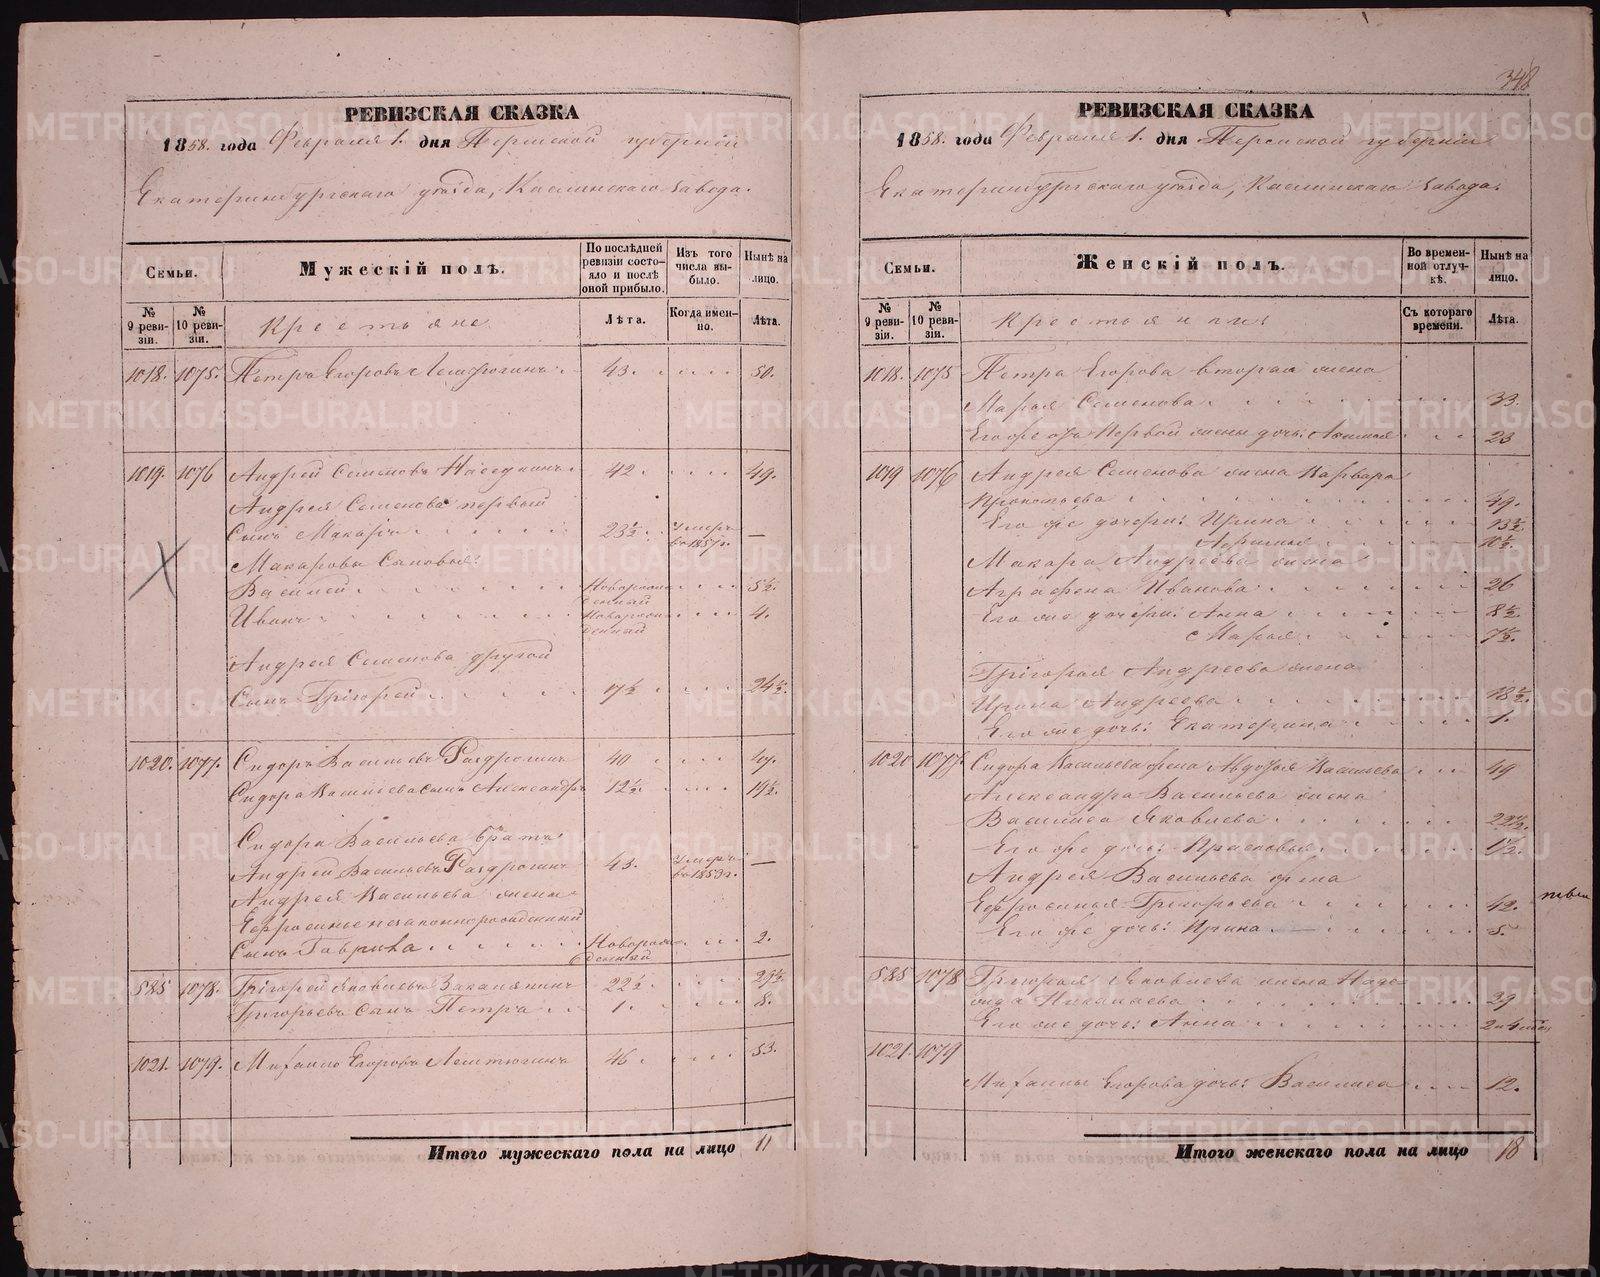 348
РЕВИЗСКАЯ СКАЗКА
1858. года Февраля 1. дня Пермской губерніи
Екатеринбургскаго уѣзда, Каслинскаго завода.
Семьи.
Мужескій полъ.
По послѣдней ревизіи состояло и послѣ оной прибыло.
Изъ того числа выбыло.
Нынѣ на лицо.
№ 9 ревизіи.
№ 10 ревизіи.
Крестьяне
Лѣта.
Когда именно.
Лѣта.
1018. 1075. Петръ Егоровъ 43. 50.
1019. 1076 Андрей Семеновъ Наседкинъ 42. 49.
Андрея Семенова первый
сынъ Макаръ 23½. умеръ въ 1857г. —
Макаровы сыновья:
Василей новорожденный 5½.
Иванъ новорожденный 4.
Андрея Семенова другой
сынъ Григорей 17½ 24½.
1020. 1077. Сидоръ Васильевъ Раздрогинъ 40 47.
Сидора Васильева сынъ Александръ 12½. 19½.
Сидора Васильева братъ
Андрей Васильевъ Раздрогинъ 43. умеръ въ 1853г. —
Андрея Васильева жены
Ефросиньи незаконнорожденный
сынъ Гаврила новорожденный 2.
585 1078. Григорей Яковлевъ 22½ 29½
Григорьевъ сынъ Петръ 1. 8.
1021. 1079. Михаило Егоровъ 46. 53.
Итого мужескаго пола на лицо 11
РЕВИЗСКАЯ СКАЗКА
1858. года Февраля 1. дня Пермской губерніи
Екатеринбургскаго уѣзда, Каслинскаго завода.
Семьи.
Женскій полъ.
Во временной отлучкѣ.
Нынѣ на лицо.
№ 9 ревизіи.
№ 10 ревизіи.
Съ котораго времени.
Лѣта.
1018. 1075 Петра Егорова вторая жена
Марья Семенова 33.
Его же отъ первой жены дочь: 23
1019 1076 Андрея Семенова жена Варвара
Прокопьева 49.
Его же дочери: Ирина 13½
10½.
Макара Андреева жена
Аграфена Иванова 26
Его же дочери: Анна 8½
Марья 7½.
Григорья Андреева жена
Ирина Андреева 18½.
Его же дочь: Екатерина 1.
1020 1077 Сидора Васильева жена Авдотья Васильева 49
Александра Васильева жена
Василиса Яковлева 22½.
Его же дочь: Прасковья 1½.
Андрея Васильева жена
Ефросинья Григорьева 42.
Его же дочь: Ирина 8.
585 1078 Григорья Яковлева жена Надежда Николаева 29
Его же дочь: Анна
1021. 1079
Михаилы Егорова дочь: Василиса 12.
Итого женскаго пола на лицо 18
METRIKI.GASO-URAL.RU